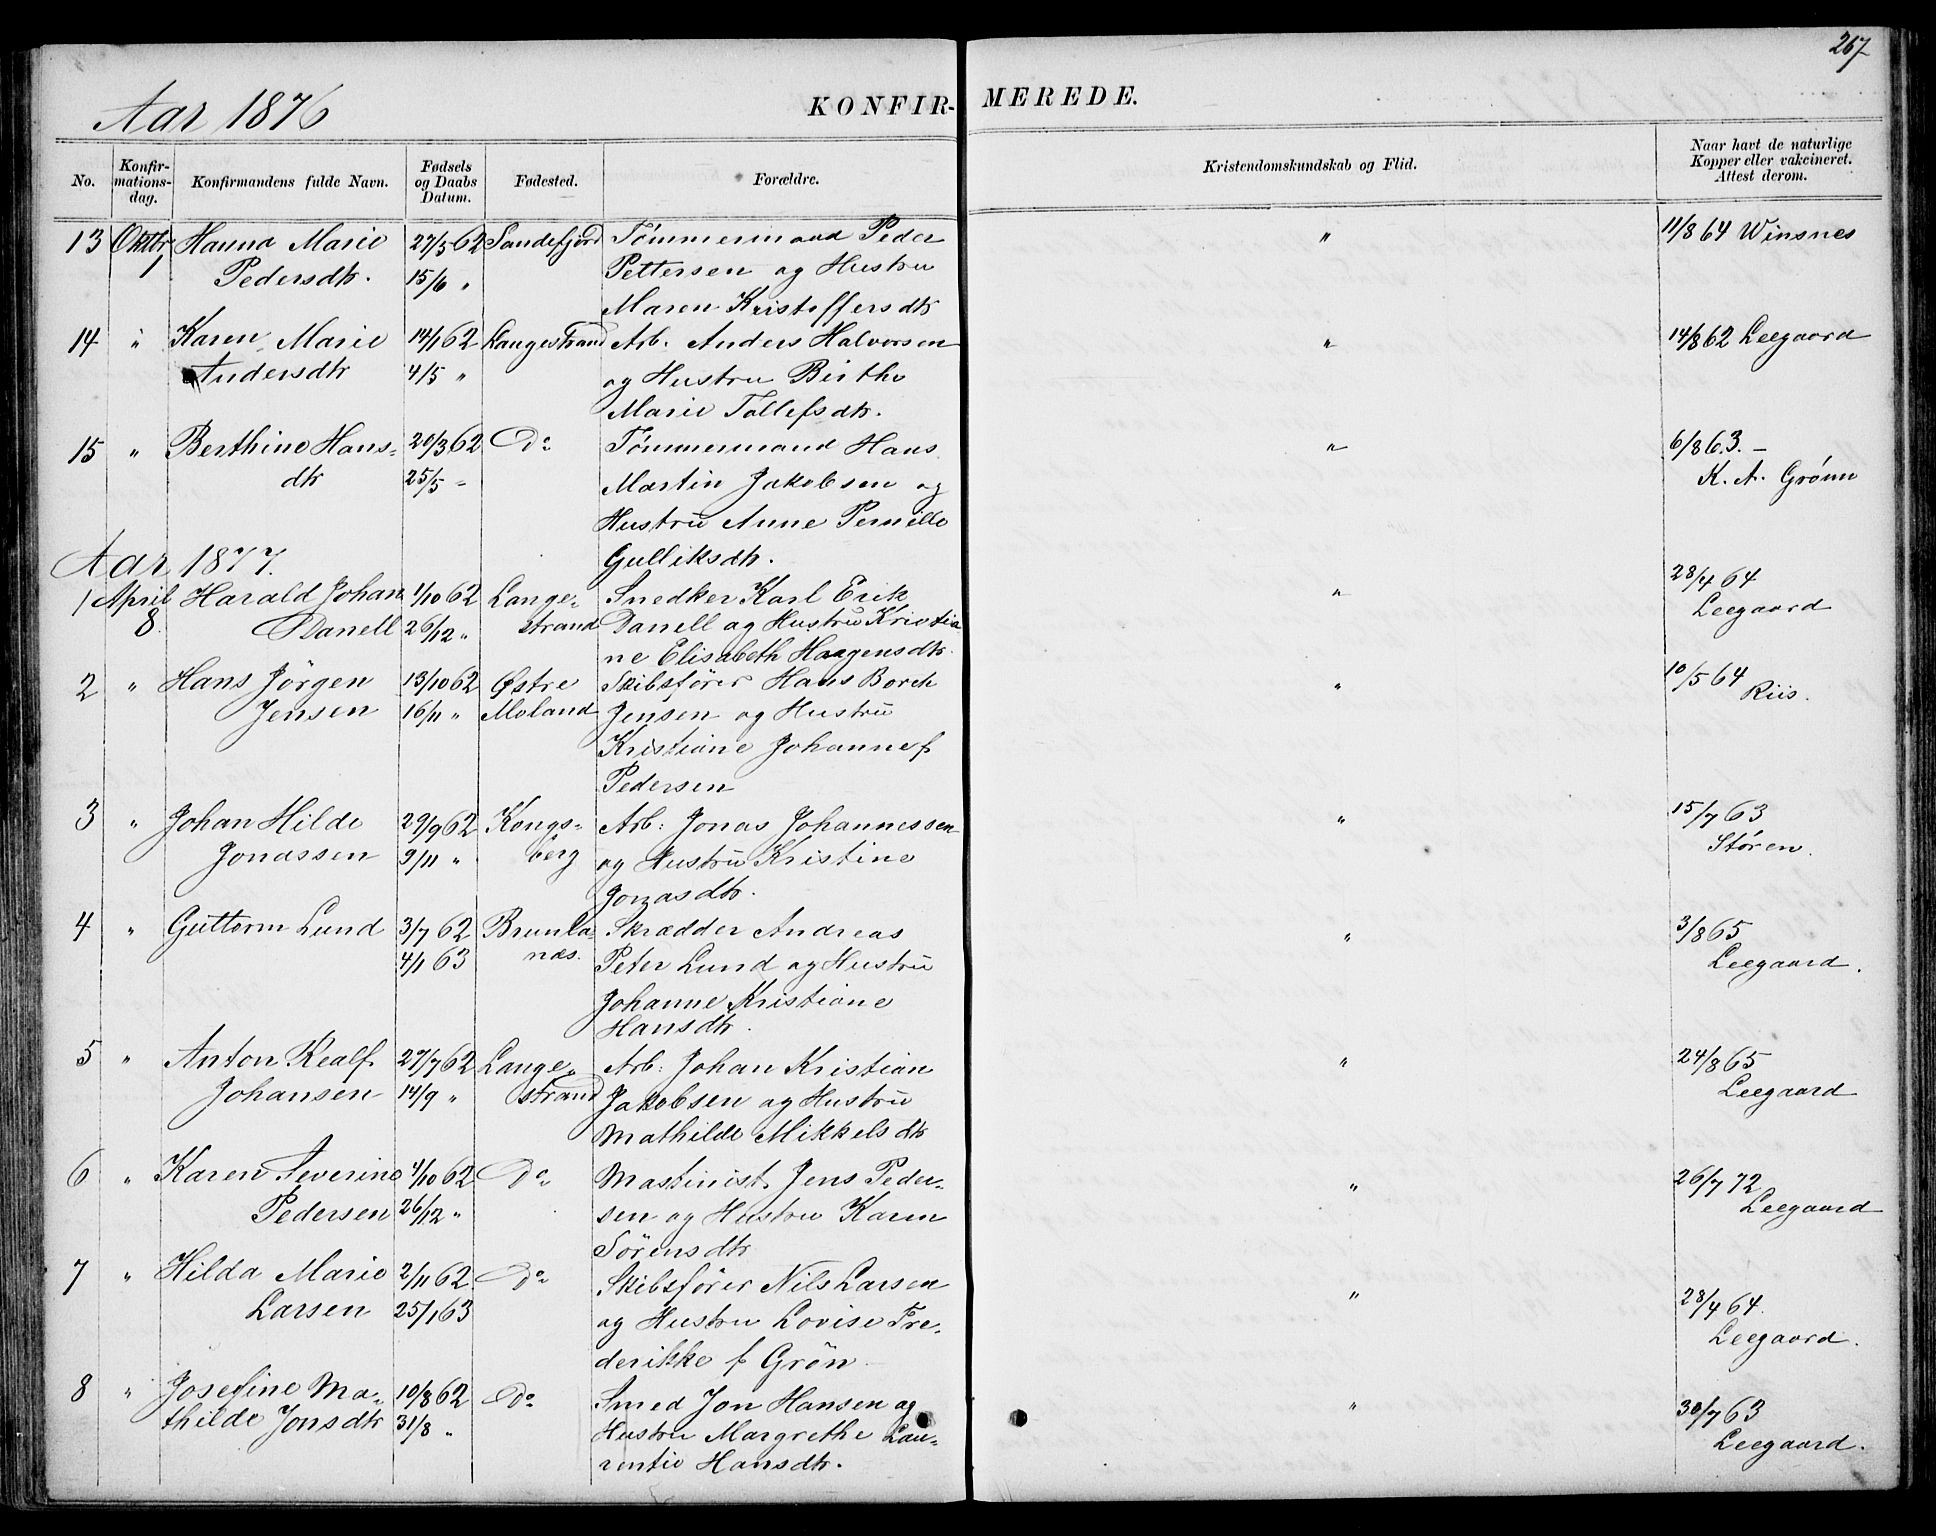 267
Aar 1876 KONFIR- MEREDE.
No. Konfir-mations-dag. Konfirmandens fulde Navn. Fødsels og Daabs Datum. Fødested. Forældre. Kristendomskundskab og Flid. Naar havt de naturlige Kopper eller vakcineret. Attest derom.
13 Oktbr Hanna Marie 27/5 62 Sandefjord Tømmermand Peder " 11/8 64 Winsnes
1 Pedersdtr. 15/6 " Pettersen og Hustru
Maren Kristoffersdtr
14 " Karen Marie 14/1 62 Langestrand Arb. Anders Halvorsen " 14/8 62 Leegaard
Andersdtr 4/5 " og Hustru Birthe
Marie Tollefsdtr.
15 " Berthine Hans- 20/3 62 Do Tømmermand Hans " 6/8 63. –
dtr 25/5 - Martin Jakobsen og K. A. Grønn
Hustru Anne Pernille
Aar 1877. Gulliksdtr.
1 April Harald Johan 1/10 62 Lange- Snedker Karl Erik " 28/4 64
8. Danell 26/12 " strand Danell og Hustru Kristia Leegaard
ne Elisabeth Haagensdtr.
2 " Hans Jörgen 13/10 62 Østre Skibsfører Hans Borch " 10/5 64
Jensen 16/11 " Moland Jensen og Hustru Riis.
Kristiane Johanne f
Pedersen
3 " Johan Hilde 29/9 62 Kongs- Arb: Jonas Johannessen " 15/7 63
Jonassen 9/11 " berg og Hustru Kristine Støren.
Jonasdtr.
4 " Guttorm Lund 3/7 62 Brunla- Skrædder Andreas " 3/8 65
4/1 63 næs. Peter Lund og Hustru Leegaard.
Johanne Kristiane
Hansdtr.
5 " Anton Realf 27/7 62 Lange- Arb: Johan Kristian " 24/8 65
Johansen 14/9 " strand Jakobsen og Hustru Leegaard
Mathilde Mikkelsdtr
6 " Karen Severine 4/10 62 Do Mastinist Jens Peder- " 26/7 72
Pedersen 26/12 " sen og Hustru Karen Leegaard
Sörensdtr
7 " Hilda Marie 2/11 62 Do Skibsfører Nils Larsen " 28/4 64.
Larsen 25/1 63 og Hustru Lovise Fre- Leegaard.
derikke f Grön
8 " Josefine Ma- 10/8 62 Do Smed Jon Hansen og " 30/7 63
thilde Jonsdtr 31/8 " Hustru Margrethe Lau- Leegaard.
rentie Hansdtr.